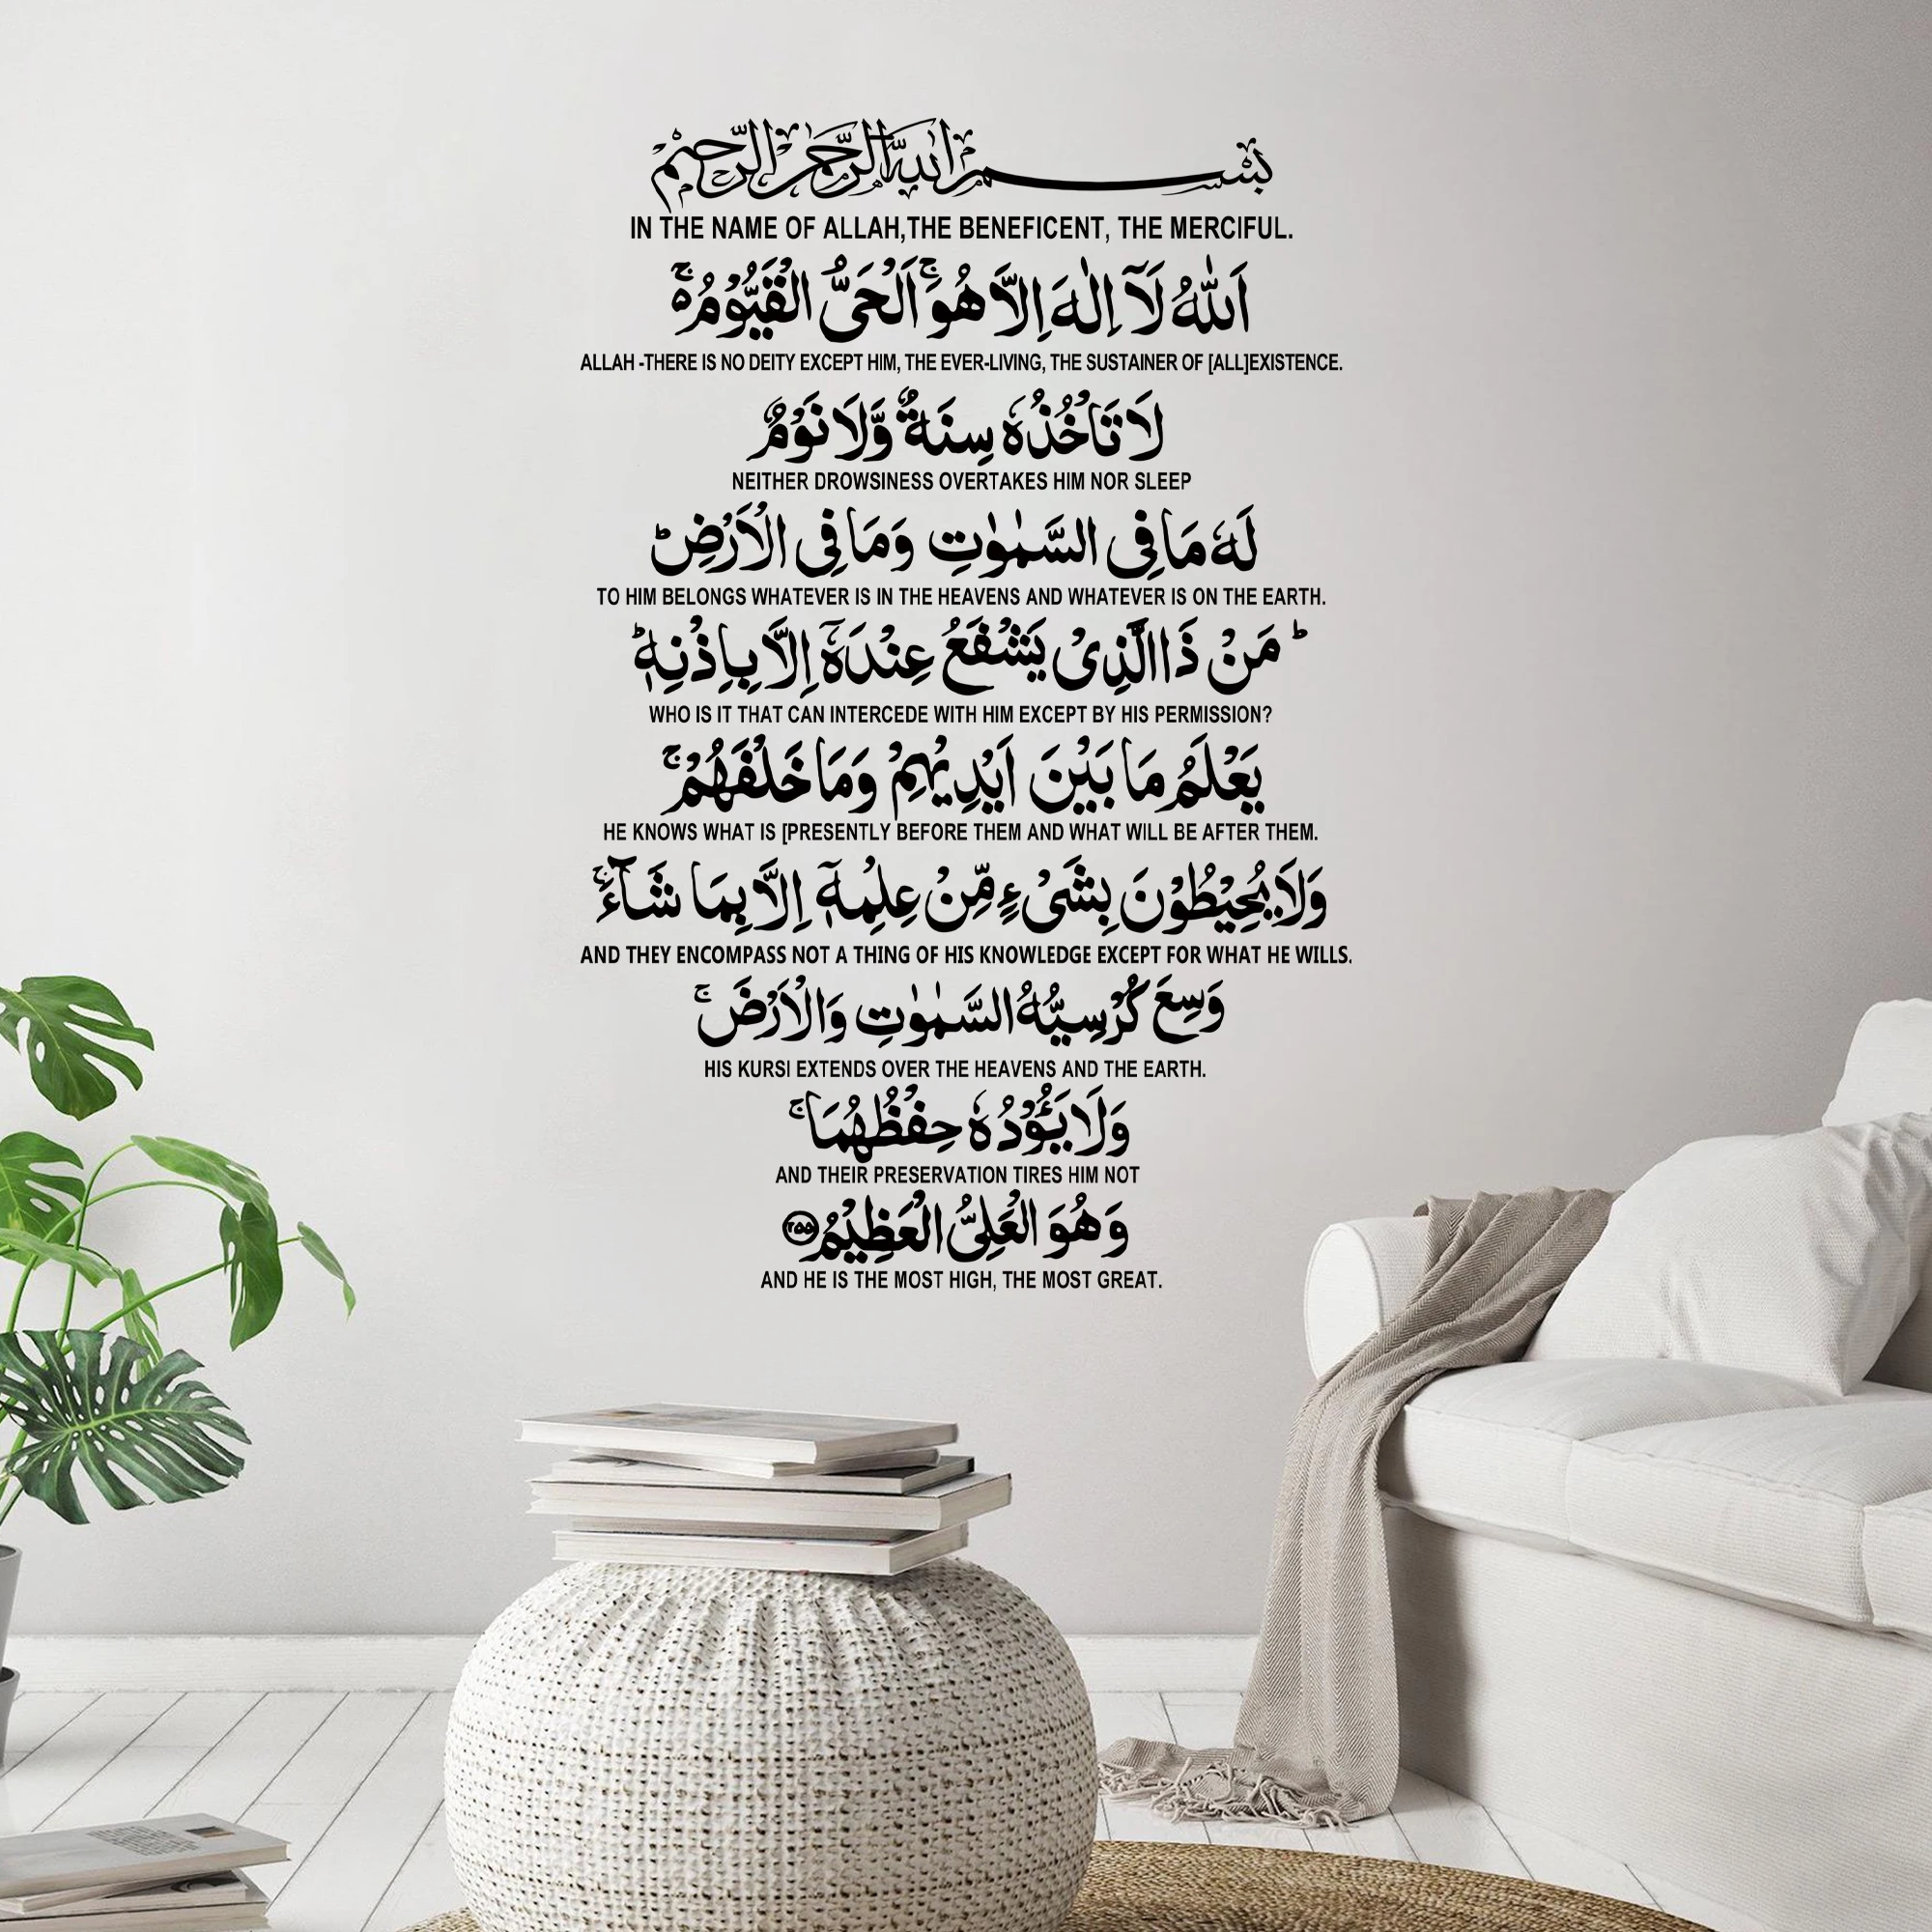 بِسْمِ اللهِ الرَّحْمٰنِ الرَّحِيْمِ
IN THE NAME OF ALLAH,THE BENEFICENT, THE MERCIFUL.
اَللّٰهُ لَآ اِلٰهَ اِلَّا هُوَۚ اَلْحَیُّ الْقَیُّوْمُ ۚ۬
ALLAH -THERE IS NO DEITY EXCEPT HIM, THE EVER-LIVING, THE SUSTAINER OF [ALL]EXISTENCE.
لَا تَاْخُذُهٗ سِنَةٌ وَّلَا نَوْمٌ
NEITHER DROWSINESS OVERTAKES HIM NOR SLEEP
لَهٗ مَا فِی السَّمٰوٰتِ وَمَا فِی الْاَرْضِ ؕ
TO HIM BELONGS WHATEVER IS IN THE HEAVENS AND WHATEVER IS ON THE EARTH.
ؕ مَنْ ذَا الَّذِیْ یَشْفَعُ عِنْدَهٗۤ اِلَّا بِاِذْنِهٖ ؕ
WHO IS IT THAT CAN INTERCEDE WITH HIM EXCEPT BY HIS PERMISSION?
یَعْلَمُ مَا بَیْنَ اَیْدِیْهِمْ وَمَا خَلْفَهُمْ ۚ
HE KNOWS WHAT IS [PRESENTLY BEFORE THEM AND WHAT WILL BE AFTER THEM.
وَلَا یُحِیْطُوْنَ بِشَیْءٍ مِّنْ عِلْمِهٖۤ اِلَّا بِمَا شَآءَ ۚ
AND THEY ENCOMPASS NOT A THING OF HIS KNOWLEDGE EXCEPT FOR WHAT HE WILLS.
وَسِعَ كُرْسِیُّهُ السَّمٰوٰتِ وَالْاَرْضَ ۚ
HIS KURSI EXTENDS OVER THE HEAVENS AND THE EARTH.
وَلَا یَـُٔوْدُهٗ حِفْظُهُمَا ۚ
AND THEIR PRESERVATION TIRES HIM NOT
وَهُوَ الْعَلِیُّ الْعَظِیْمُ ۲۵۵
AND HE IS THE MOST HIGH, THE MOST GREAT.